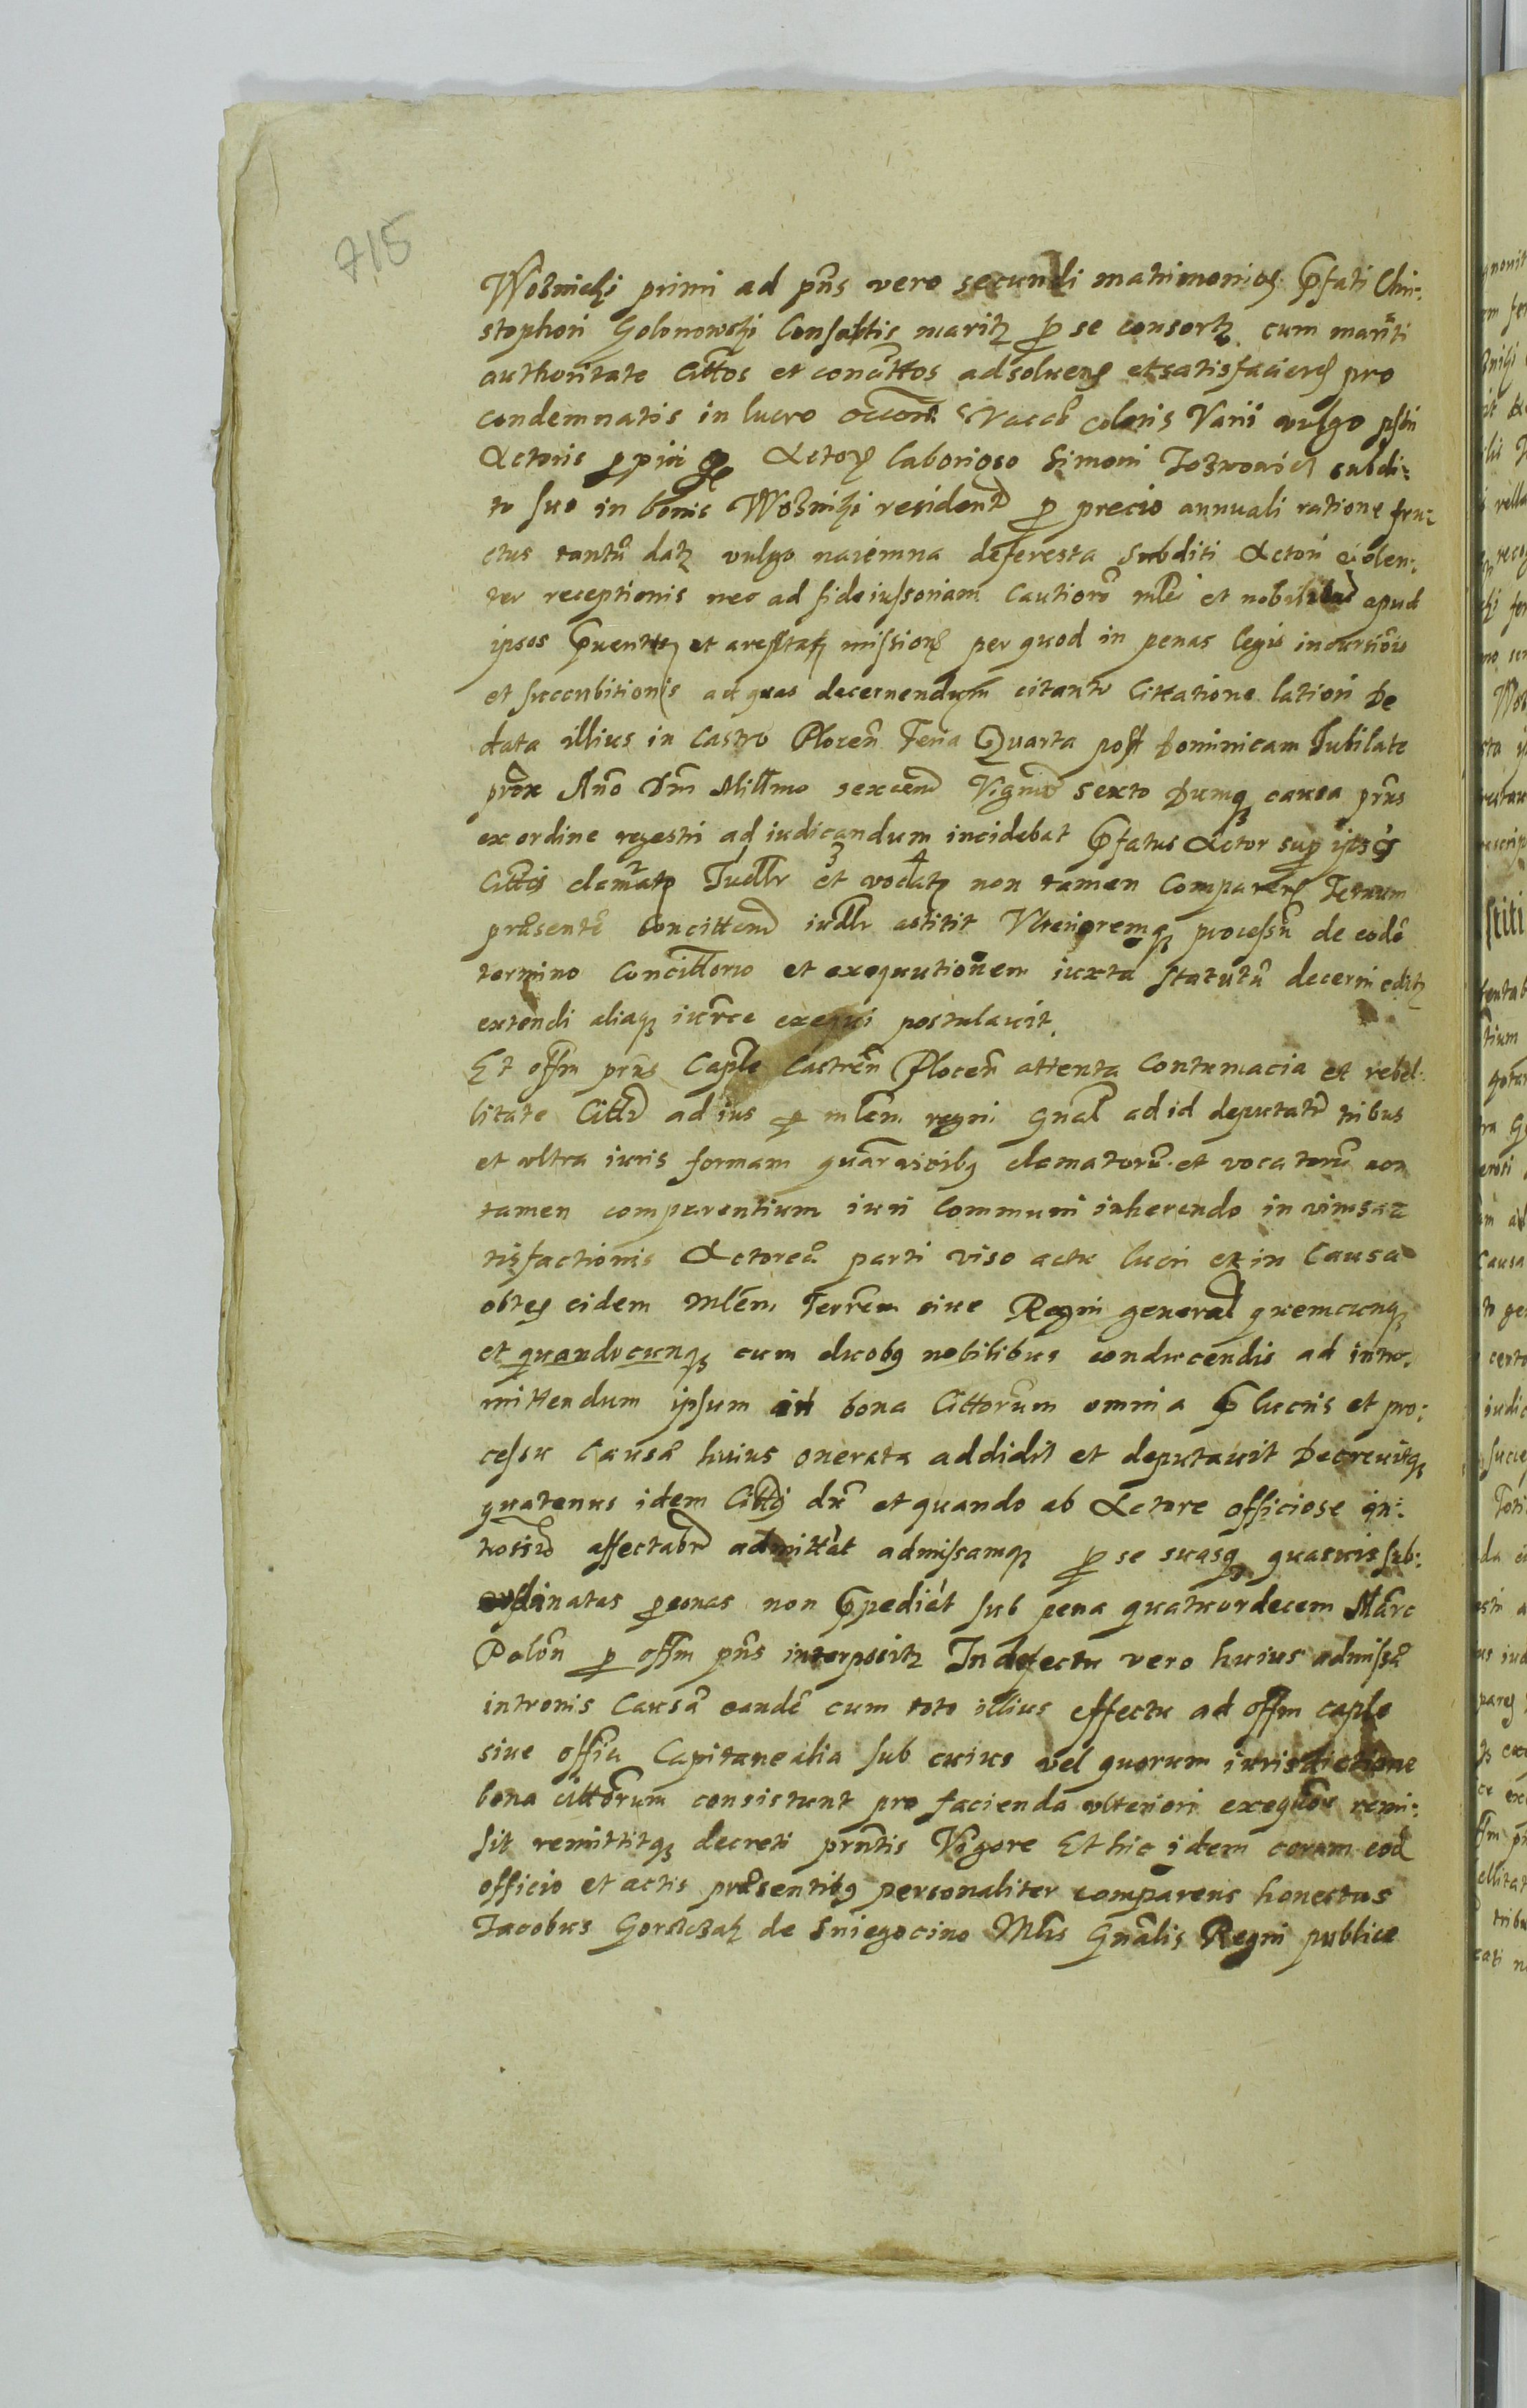 715
Woznichi primi ad pñs vero secundi matrimonioꝝ p̃fati Chri-
stophori Golonowski Consortis maritꝫ ꝑ se consortꝫ cum mariti
authoritate Citt̃os et concitt̃os adsoluenꝫ et satisfacienꝫ pro
condemnatis in lucro vaccæ coloris Varii vulgo
Actoris ꝓprii Actorꝫ laborioso Simoni subdi:
to suo in bonis Woznihi resident̃ ꝓ precio annuali ratione fru:
ctus tantũ datꝫ vulgo naiemna deferesta subditi Actori violen:
ter receptionis nec ad fideiussoriam Cautionẽ mlẽ et nobilitad̃ apud
ipsos p̃uentꝫ et arestatꝫ missionꝫ per quod in penas legis incursiõis
et succubitionis ad quas decernendum citantr Cittatione latiori De
data illius in Castro Plocen̄ Feria Quarta post Dominicam Iubilate
prox̃ Año Dñi Mill̃mo sexcen̄ Vigmõ sexto Dumqꝫ causa pr̃ns
ex ordine regestri ad iudicandum incidebat p̃fatus Actor sup̱ ipsos
Citt̃os clamatꝫ Iudlr 3 et 4 vocatꝫ non tamen Comparenꝫ Terminum
præsentẽ Concittatũ iudlr astitit Vlterioremqꝫ processũ de eodẽ
termino Concittorio et exequutionem iuxta Statutũ decerni edetꝫ
extendi aliaqꝫ iur̃ce exequi postulauit.
Et off̃m pr̃ns Cap̃le Castren̄ Plocen̄ attenta Contumacia et rebel:
litate Citt̃ ad ius ꝑ ml̃em regni Gnãl ad id deputatũ tribus
et ultra iuris formam quarvicibꝫ clamatorũ et vocatorũ non
tamen comparentium iuri Communi inherendo in vim sa=
tisfactionis Actoreæ parti viso actu lucri et in Causa
obteꝫ eidem Ml̃em Terr̃em siue Regni general quemcunqꝫ
et quandocunqꝫ cum duobꝫ nobilibus conducendis ad intro:
mittendum ipsum in bona Cittorum omnia p̃ lucris et pro:
cessu Causæ huius onerata addidit et deputauit Decreuitqꝫ
quatenus idem Citt̃i dũ et quando ab Actore officiose in:
tromissio affectabr̃ admittãt admissamqꝫ ꝑ se suasqꝫ quasuis sub:
ordinatas ꝑsonas non p̃pediãt sub pena quatuordecem Mar̃c
Polon̄ ꝑ off̃m pñs interpositꝫ In defectu vero huius admissæ
intronis Causã eandẽ cum toto illius effectu ad off̃m cap̃le
siue off̃ia Capitanealia sub cuius vel quorum iurisdictione
bona cittorum consistunt pro facienda ulteriori exequõe remi:
sit remittitqꝫ decreti pr̃ntis Vigore Et hic idem coram eod̃
officio et actis præsentibꝫ personaliter comparens honestus
Jacobus Gorsiczak de Sniegocino Ml̃is Gnãlis Regni publice